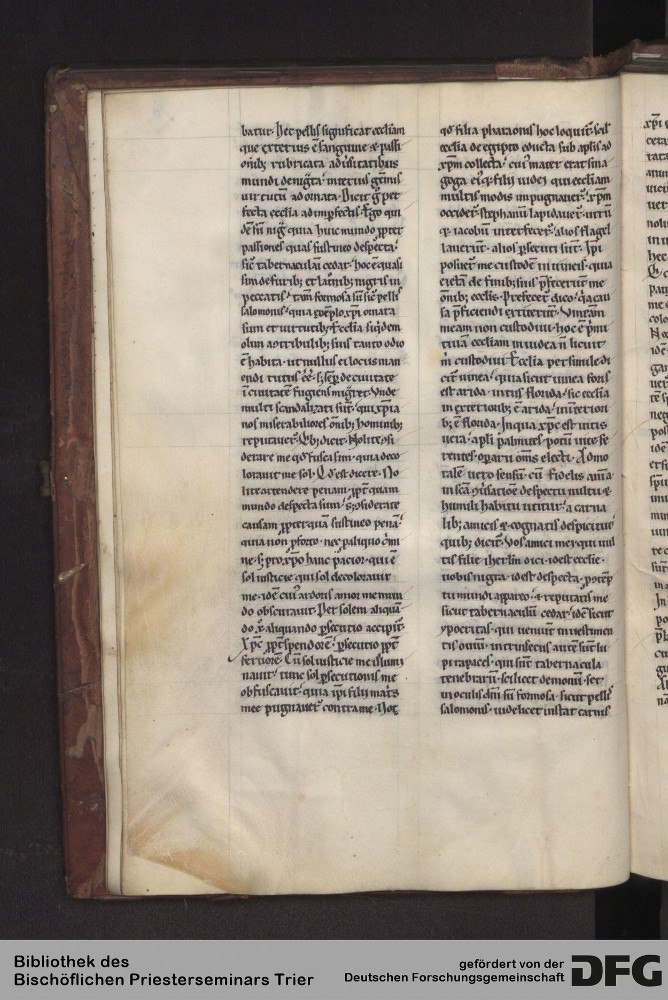 batur. Hec pellis significat eccliam
que exterius ē sanguine & passi
onib; rubricata aduersitatibus
mundi denigrata. interius gemmis
uirtutum adornata. Dicit g̃ per
fecta ecclia ad imperfectis. Ego qui
dē sū nigra quia huic mundo propter
passiones quas sustineo despecta.
sic tabernaculū cedar. hoc ē quasi
sim de furib; et latronib; nigris in
peccatis. tam formosa sū sic pellis
salomonis. quia exemplo xpi ornata
sum et uirtutib;. Ecclia siquidem
olim a tribulib; suis tanto odio
ē habita. ut nullus ei locus man
endi tutus eēt. s; sep de ciuitate
ī ciuitatē fugiens migret. Unde
multi scandalizati sūt. qui xpia
nos miserabiliores omib; hominib;
reputauer. Quib; dicit. Nolite si
derare me qd fusca sim. quia deco
lorauit me sol. Qd est dicere. No
lite attendere penam. ppt quam
mundo despecta sum. s; considerate
causam ppter quā sustineo penā.
quia non pfecto. nec p aliquo crimi
ne. s; pro xpo hanc pacior. qui ē
sol iusticie. qui sol decolorauit
me. idē cui ardoris amor me mun
do obscurauit. Per solem aliquā
do xps. aliquando psecutio accipit.
Xpc ppt splendorē. psecutio ppt
feruorē. Cū sol iusticie me illumi
nauit. tunc sol psecutionis me
obfuscauit. quia ipi filii matris
mee pugnauer contra me. Hoc
qd filia pharaonis hoc loquit. scil
ecclia de egipto educta sub aplis ad
xpm collecta. cui mater erat sina
goga eiq; filii iudei qui eccliam
multis modis impugnauer. xpm
occider. stephanū lapidauer. utrū
q; iacobū interfecer. alios flagel
lauerūt. alios psecuti sūt. Ipi
posuer me custodē in uineis. quia
eiectā de finib; suis pfecerunt me
omib; ecclis. Prefecer dico. qa cau
sa pficiendi extiterūt. Uineam
meam non custodiui. hoc ē primi
tiuā eccliam in iudea n̄ licuit
m̄ custodiui. Ecclia per simile di
citr uinea. quia sicut uinea foris
est arida. intus florida. sic ecclia
in exteriorib; ē arida. in interiori
b; ē florida. In qua xpc est uitis
uera. apli palmites. potū uite fe
rentes. operarii oms electi. Ad mo
ralē uero sensū. cū fidelis anīa
in scā conuersatione despectu uultu &
humili habitu utitur. a carna
lib; amicis & cognatis despicitur.
quib; dicit. Vos amici mei qui uul
tis filie iherlm dici. id est ecclie.
uobis nigra. id est despecta. & paup
tu mundi appareo. & reputatis me
sicut tabernaculū cedar. idē sicut
ypocritas. qui ueniunt in uestimen
tis ouiū. intrinsecus autē sūt lu
pi rapaces. qui sūt tabernacula
tenebrarū. scilicet demonū. set
in oculis dni sū formosa. sicut pellis
salomonis. uidelicet instar carnis
Bibliothek des
Bischöflichen Priesterseminars Trier
gefördert von der
Deutschen Forschungsgemeinschaft
DFG